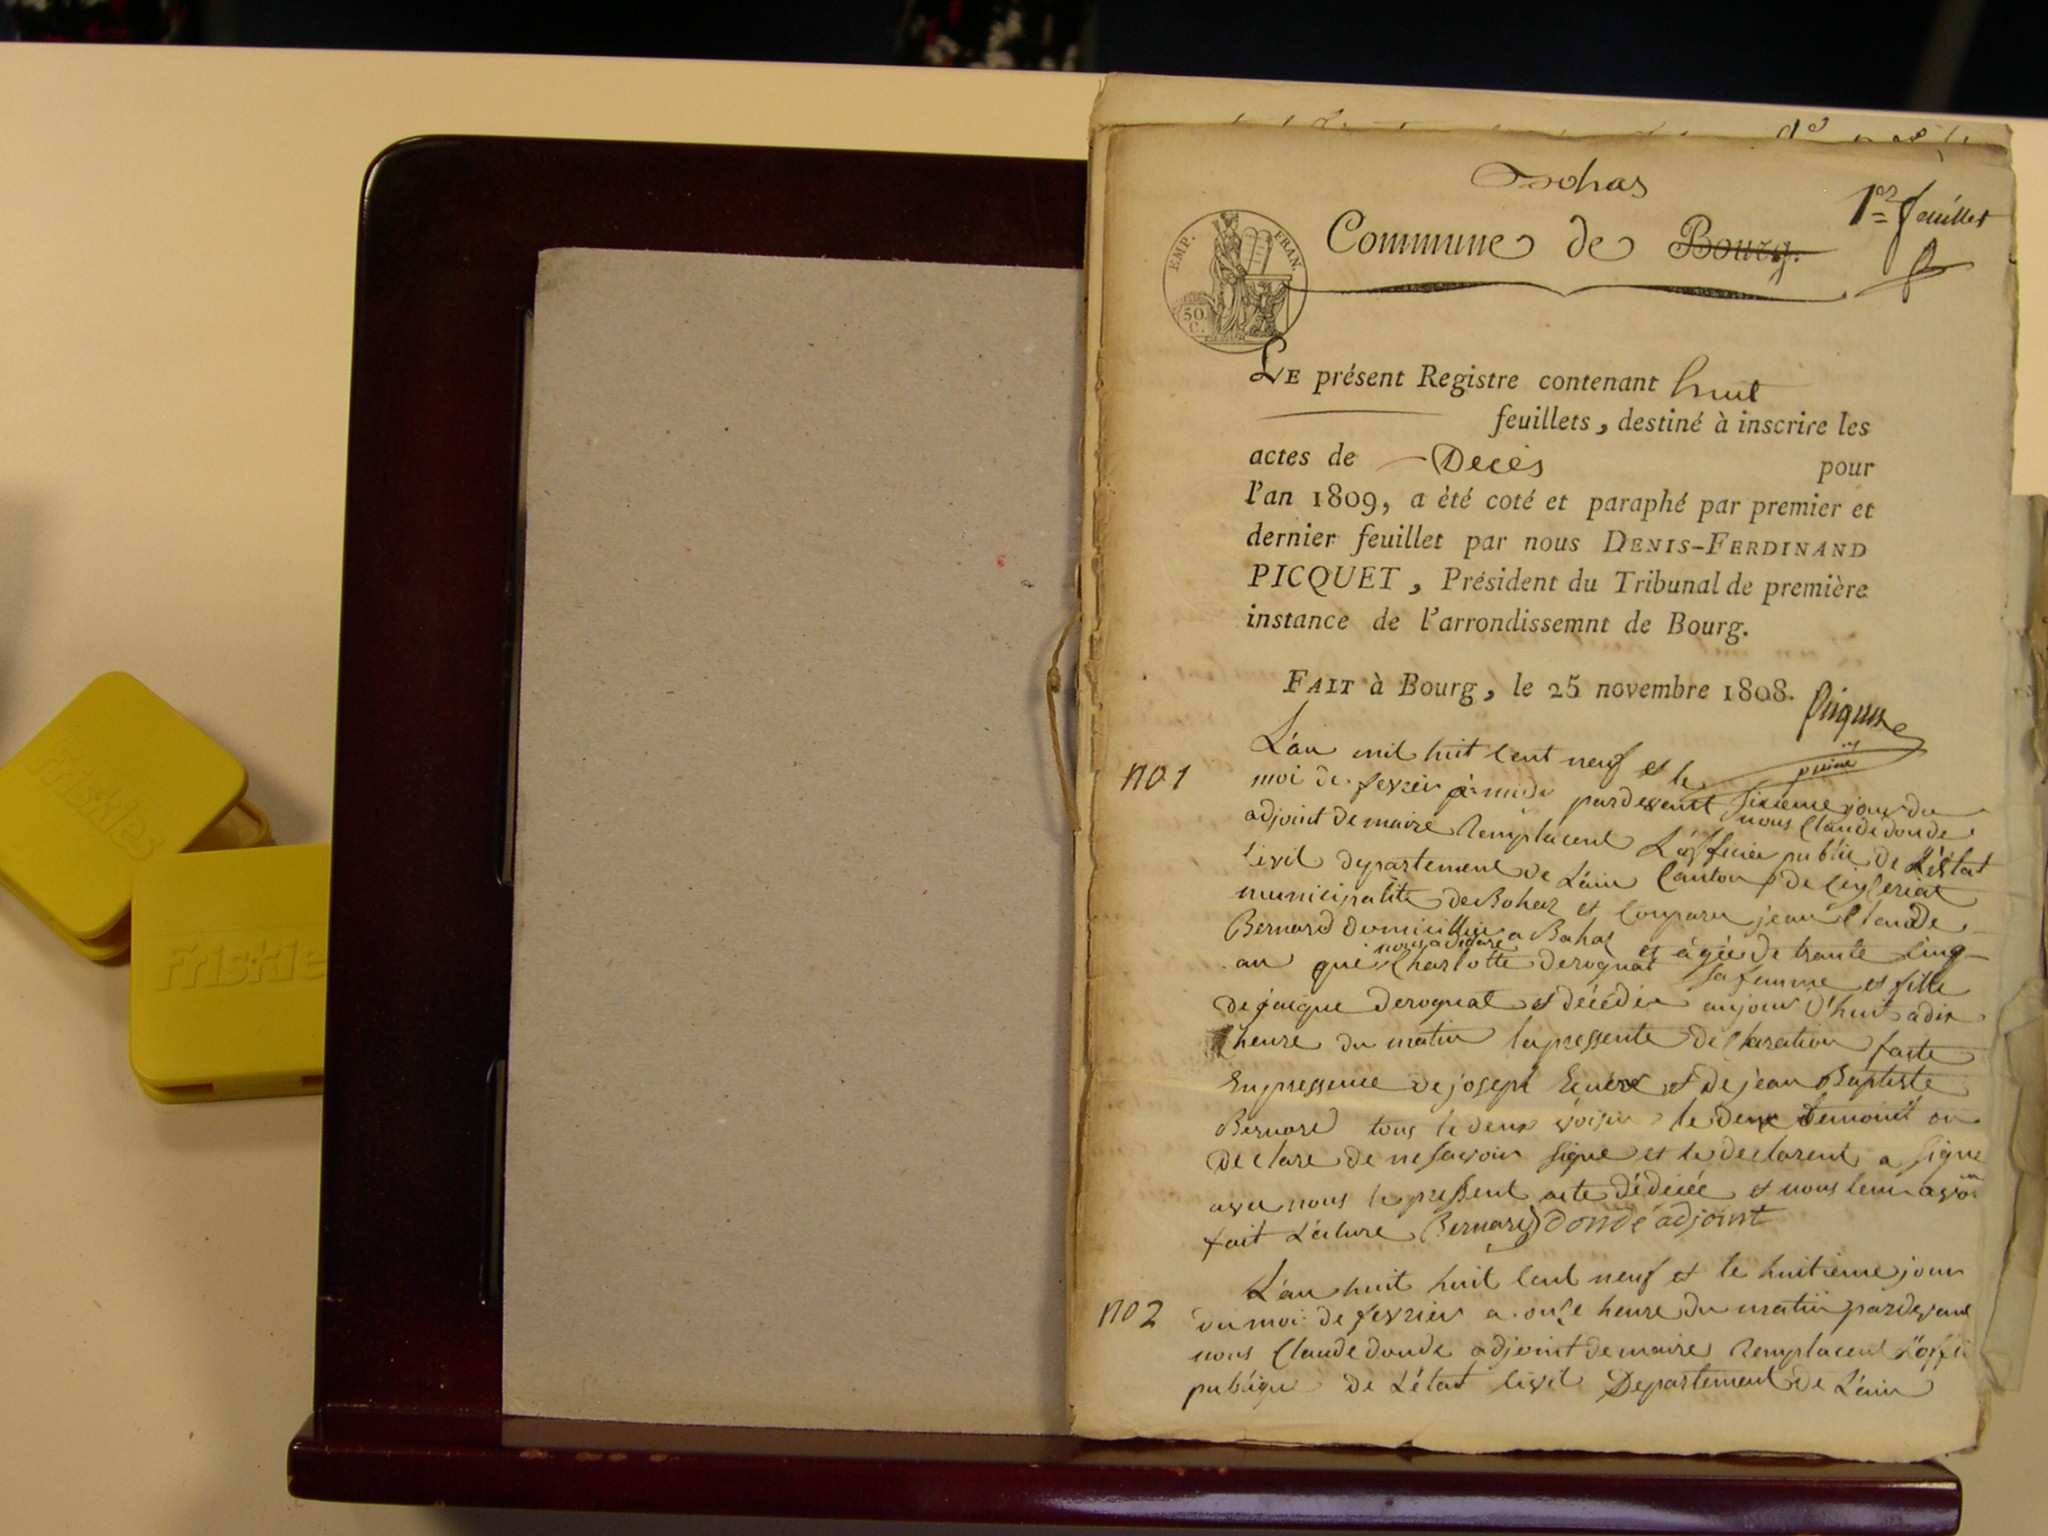 Bohas
1er feuillet
Commune de Bourg.
EMP. FRAN.
50
C.
LE présent Registre contenant huit
feuillets, destiné à inscrire les
actes de Décès pour
l'an 1809, a été coté et paraphé par premier et
dernier feuillet par nous DENIS-FERDINAND
PICQUET, Président du Tribunal de première
instance de l'arrondissemnt de Bourg.
FAIT à Bourg, le 25 novembre 1808.
Picquet
no 1
L'an mil huit cent neuf et le sixieme jour du
moi de fevrier à midi pardevant nous Claude donde
adjoint de maire Remplacent L'officier public de L'état
Civil departement de L'ain Canton de Ceyzeriat
municipalité de Bohaz et Comparu jean Claude
Bernard domicillié a Bohaz et agée de trante cinq
an nous a declaré que Charlotte derognat sa femme et fille
de jacque derognat et décédée aujour d'huit a dix
heure du matin la pressente declaration faite
En pressence de joseph et de jean Baptiste
Bernard tous le deux voisin le deux temoint on
declare de ne savoir signe et le declarent a signe
avec nous le pressent acte et nous leur avon
fait Lecture Bernard donde adjoint
no 2
L'an huit huit cent neuf et le huitieme jour
du moi de fevrier a onze heure du matin pardevant
nous Claude donde adjoint de maire Remplacent L'offi
publique de L'état Civil Departement de L'ain
Friskies
Friskie